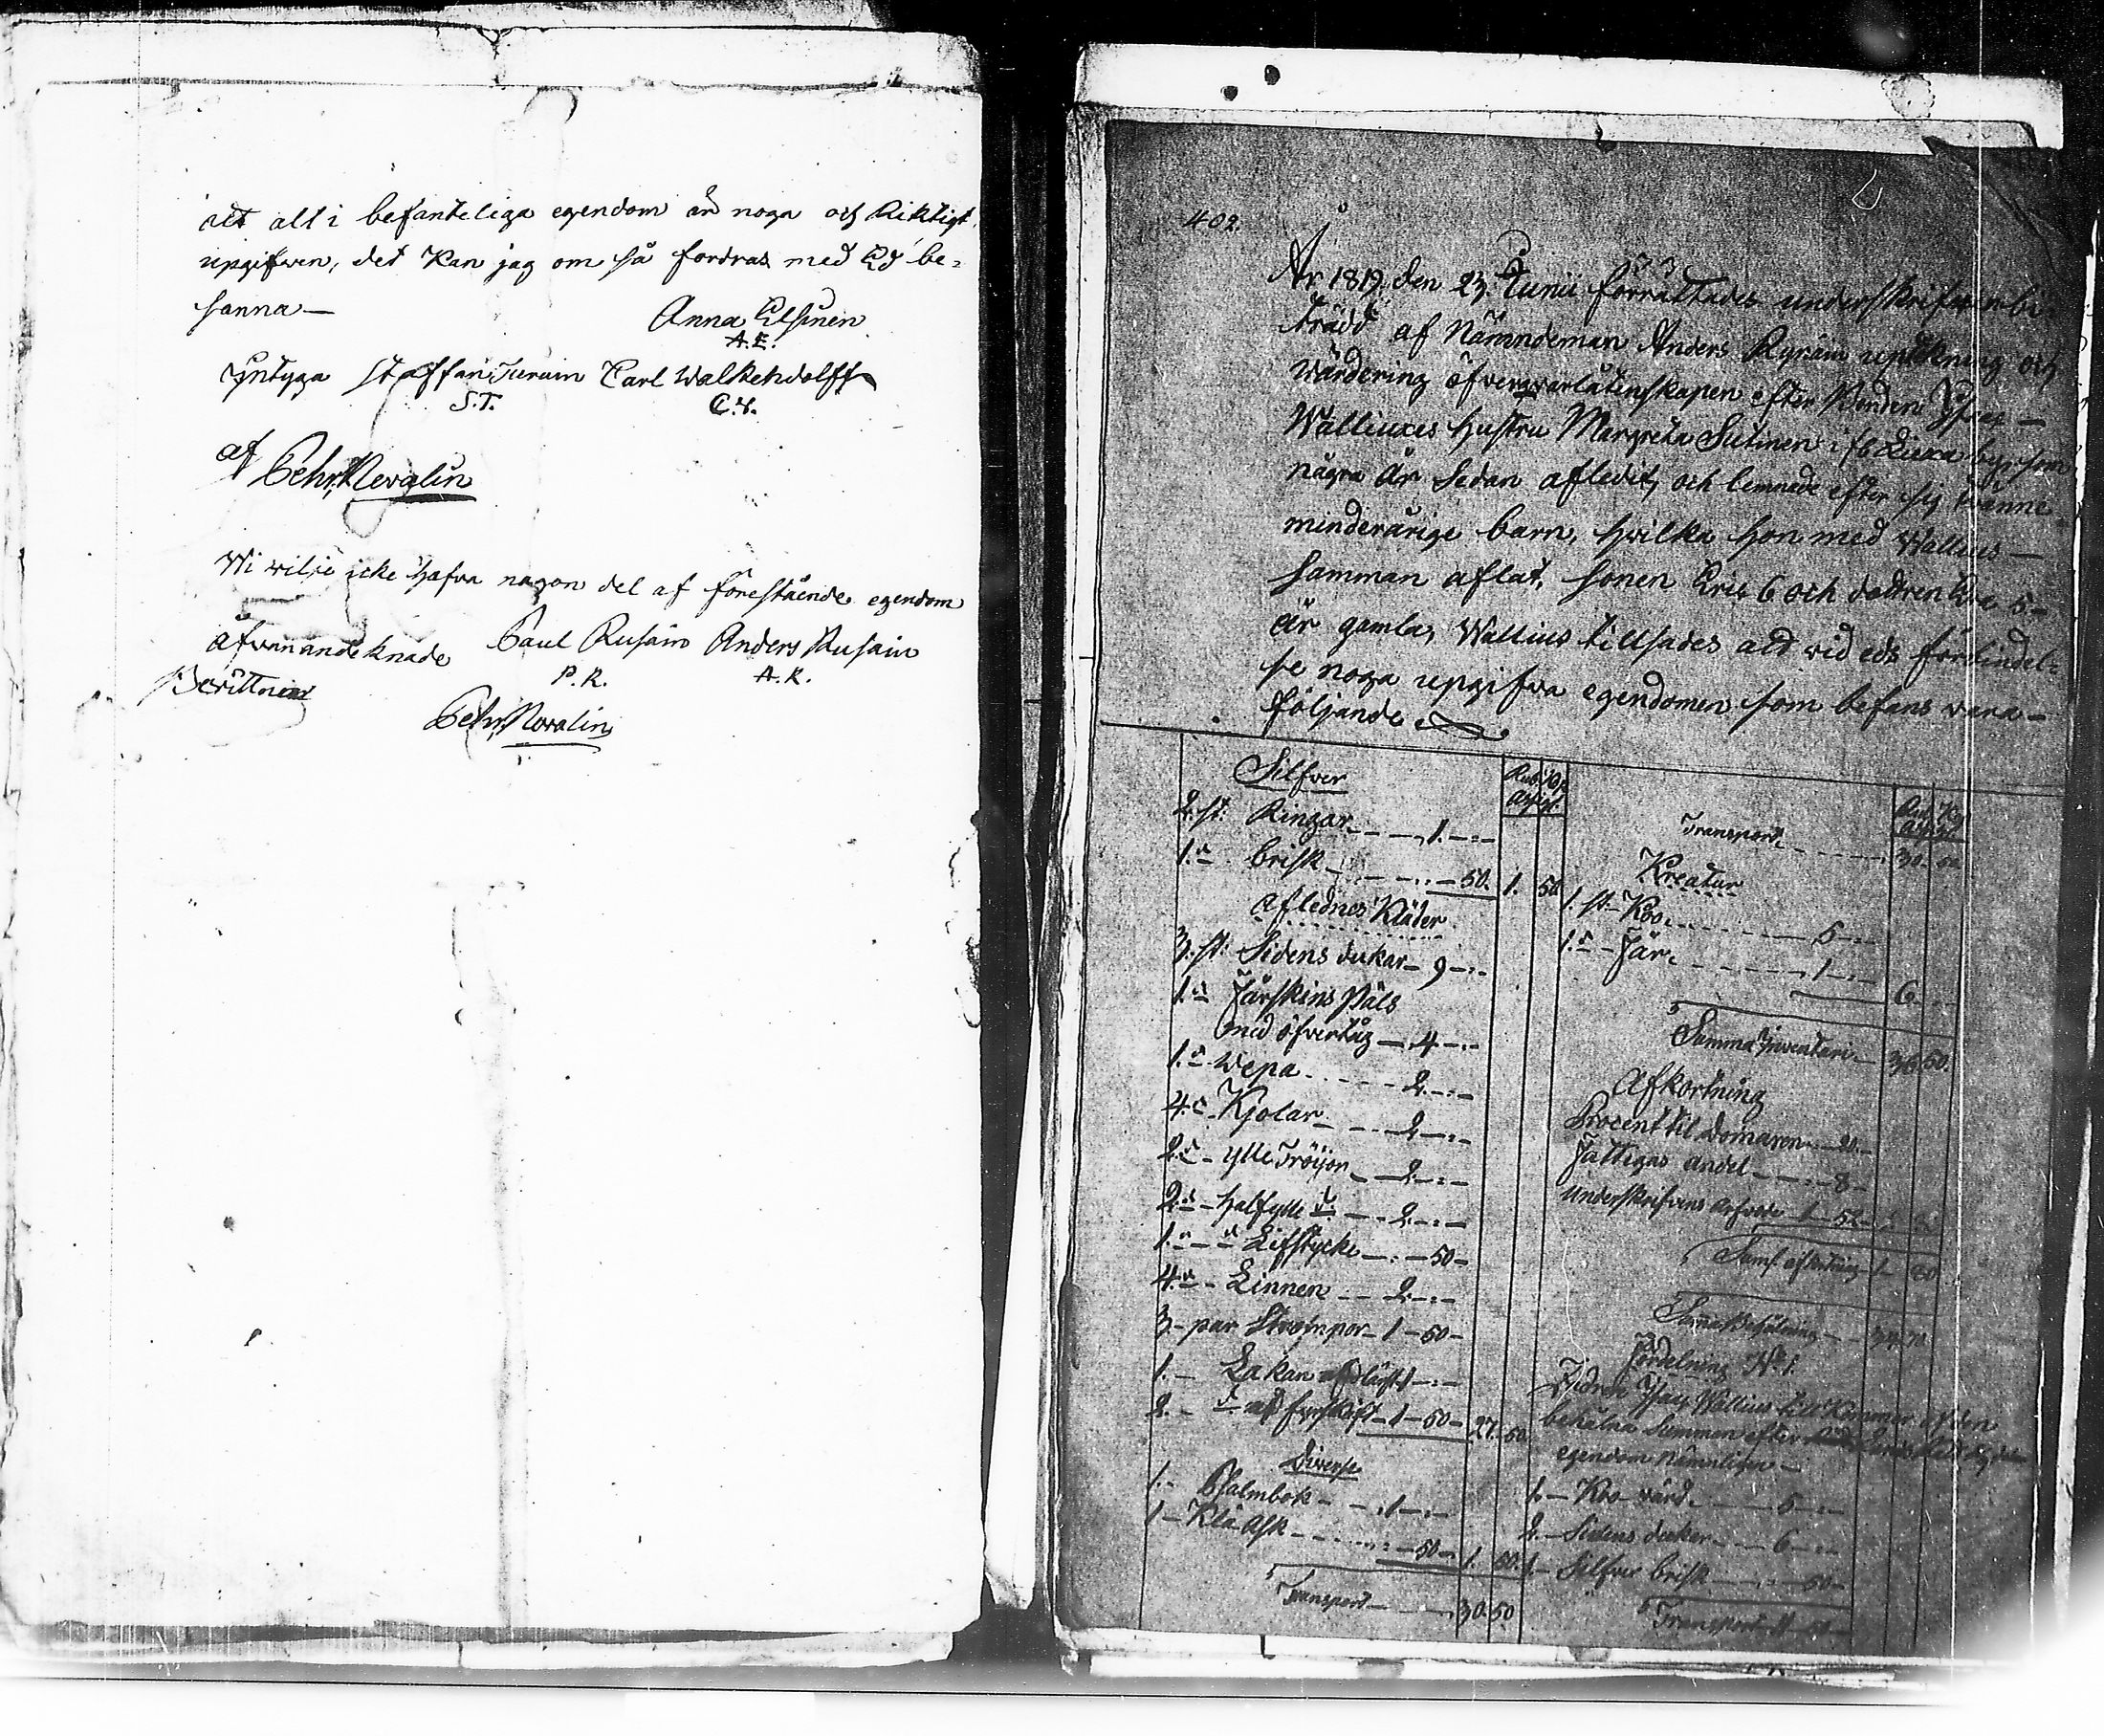 att alt i befanteliga egendom är noga och Riktigt
upgifven, det kan jag om så fordras med Ed be-
sanna —
Anna Elsinen
A.E.
Intyga Staffan Turain Carl Walkendolff
S.T. C.W.
af
Pehr Nevalin
Wi wilje icke hafva nagon del af förestående egendom
åfvananteknade Paul Rusain Anders Rusain
P.R. A.R.
Skrittnin
Pehr Nevalin
402.
År 1819 den 23. Junii förrättades underskrifven bi-
trädd af Nämndeman Anders Ryräin uptekning och
Wärdering öfver qvarlåtenskapen efter Bonden
Walliuxes hustru Margreta Sutinen i by, som
några År sedan afledit, och lemnade efter sig tvänne
minderårige barn, hwilka hon med Wallius —
samman aflat, sonen Eric 6 och dottren 5 —
år gamla, Wallius tillsades att vid eds förbindel-
se noga upgifva egendomen som befans vara —
följande
Silfver Rub. Kop. Assigt.
2. st: Ringar 1. —
1. brisk 50. 1. 50
Aflednes Kläder
3. st: Sidens dukar 9 —
1. Fårskins Päls
med öfvertåg 4 —
1. Wepa 2 —
4. Kjolar 2 —
2. Ylle Tröijor 2 —
2. halfylle D: 2 —
1. Lifstycke 50 —
4. Linnen 2 —
3 — par Strompor 1 — 50 —
1. — Lakan 1 —
2. — D: 1 — 50 — 27. 50.
Diverse
1. — Psalmbok 1 —
1 — Klä Ask 50 — 1. 50.
Transport 30. 50
Rub. Kop. Assigt.
Transport 30. 50.
Kreatur
1. st — Koo 5 —
1. — Får 1 — 6. —
Summa Inventari 36. 50.
Afkortning
Procent til Domaren 20. —
Fattigas andel 8 —
Underskrifvens Arfvode 1 — 52 —
Sums afkortning 1 80
Behålning 34. 70.
Fördelning No 1.
Fadren Wallius tillkommer af den
behålna Summan efter
egendom nämnligen —
1. — Koo värd 5 —
2. — Sidens dukar 6 —
1. — Silfver brisk 50 —
Transport 11 — 50 —